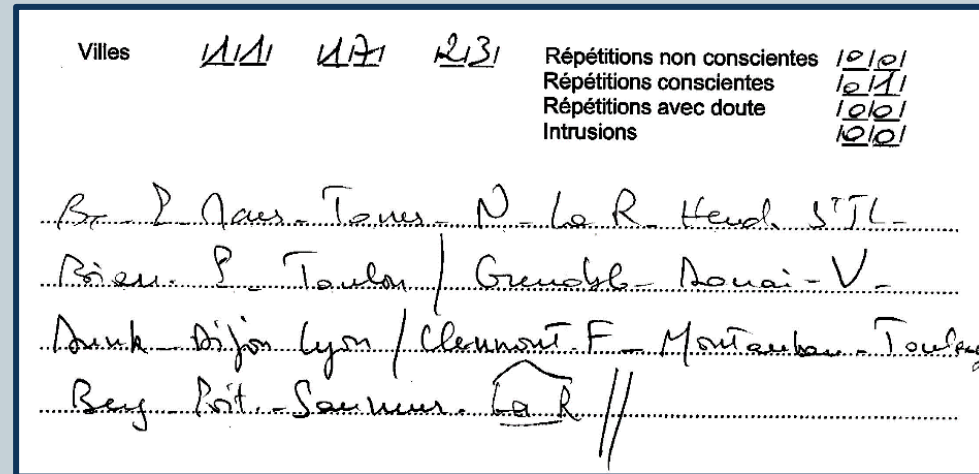 Villes /1/1/ 1/7/ 2/3/
Répétitions non conscientes /0/0/
Répétitions conscientes /0/1/
Répétitions avec doute /0/0/
Intrusions /0/0/
P Tours - N - La R - Hend. St JL -
P - Toulon / Grenoble - Douai - V -
Dunk - Dijon Lyon / Clermont. F - Montauban - Toulouse
Berg - Poit. - Saumur. La R //